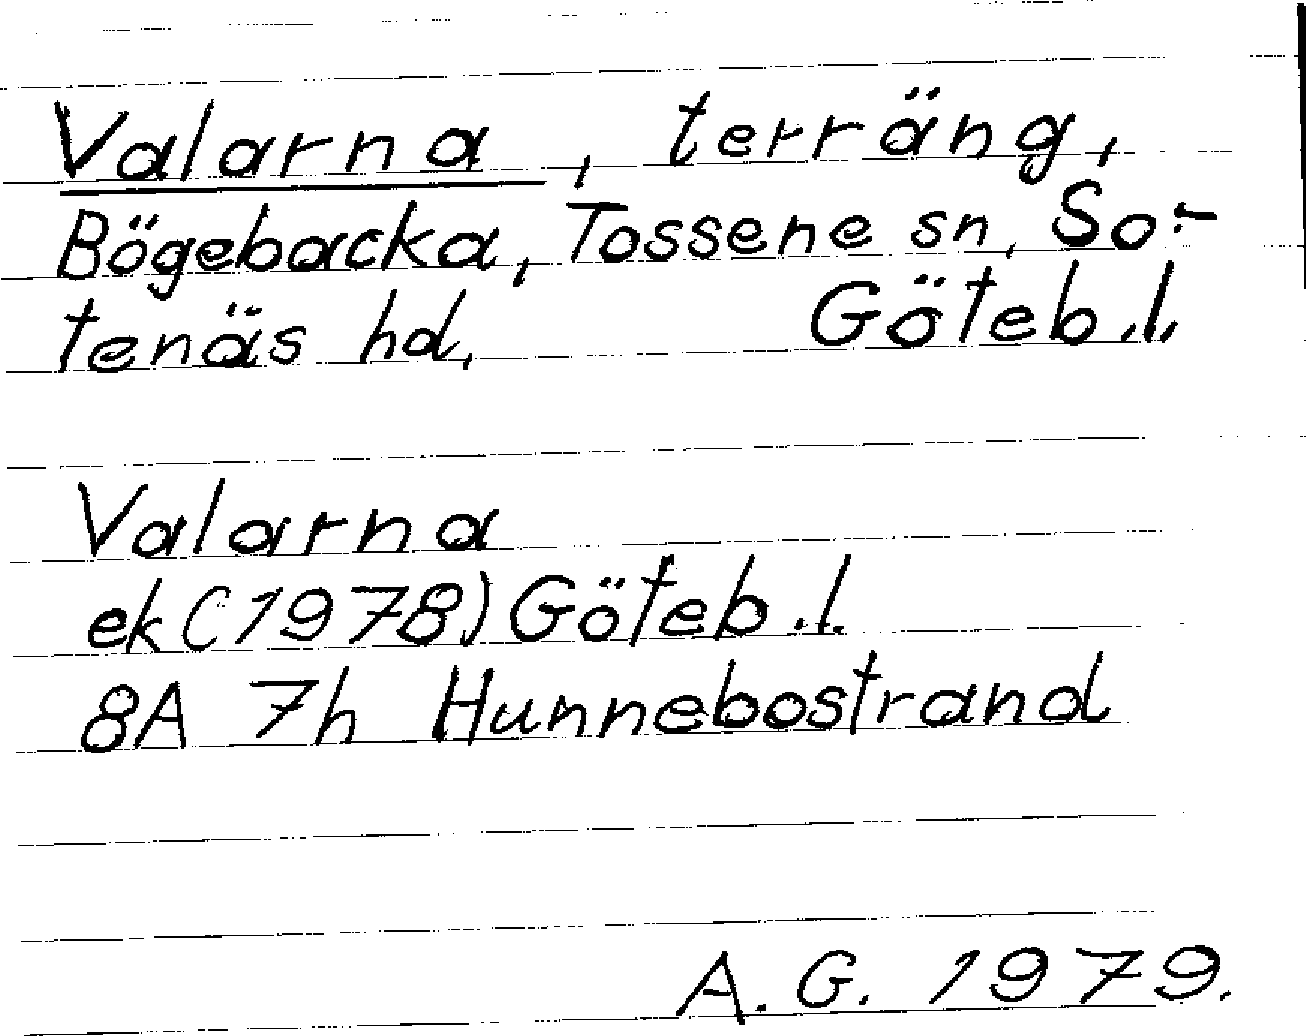 Valarna, terräng,
Bögebacka, Tossene sn, So:-
tenäs hd, Göteb.l.
Valarna
ek (1978) Göteb.l.
8A 7h Hunnebostrand
A.G. 1979.